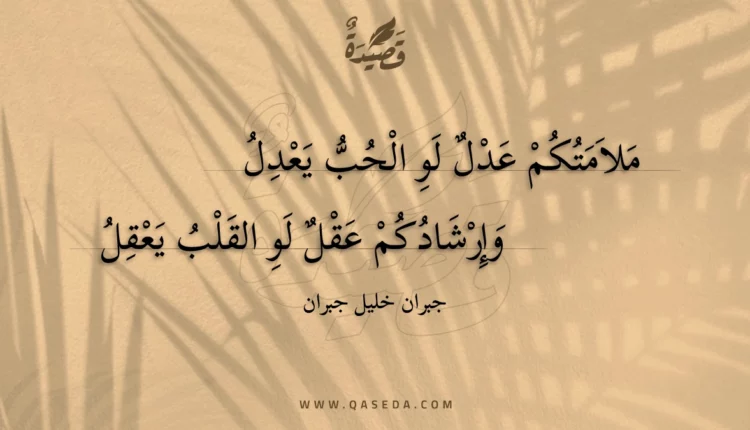 قَصِيْدَةٌ
مَلاَمَتُكُمْ عَدْلٌ لَوِ الْحُبُّ يَعْدِلُ
وَإِرْشَادُكُمْ عَقْلٌ لَوِ القَلْبُ يَعْقِلُ
جبران خليل جبران
WWW.QASEDA.COM